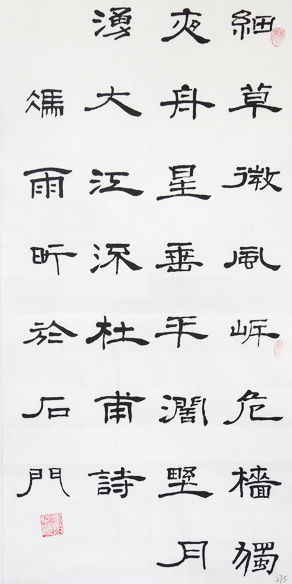 細草微風岸危檣獨
夜舟星垂平濶野月
湧大江流杜甫詩
馮雨昕於石門
2/5